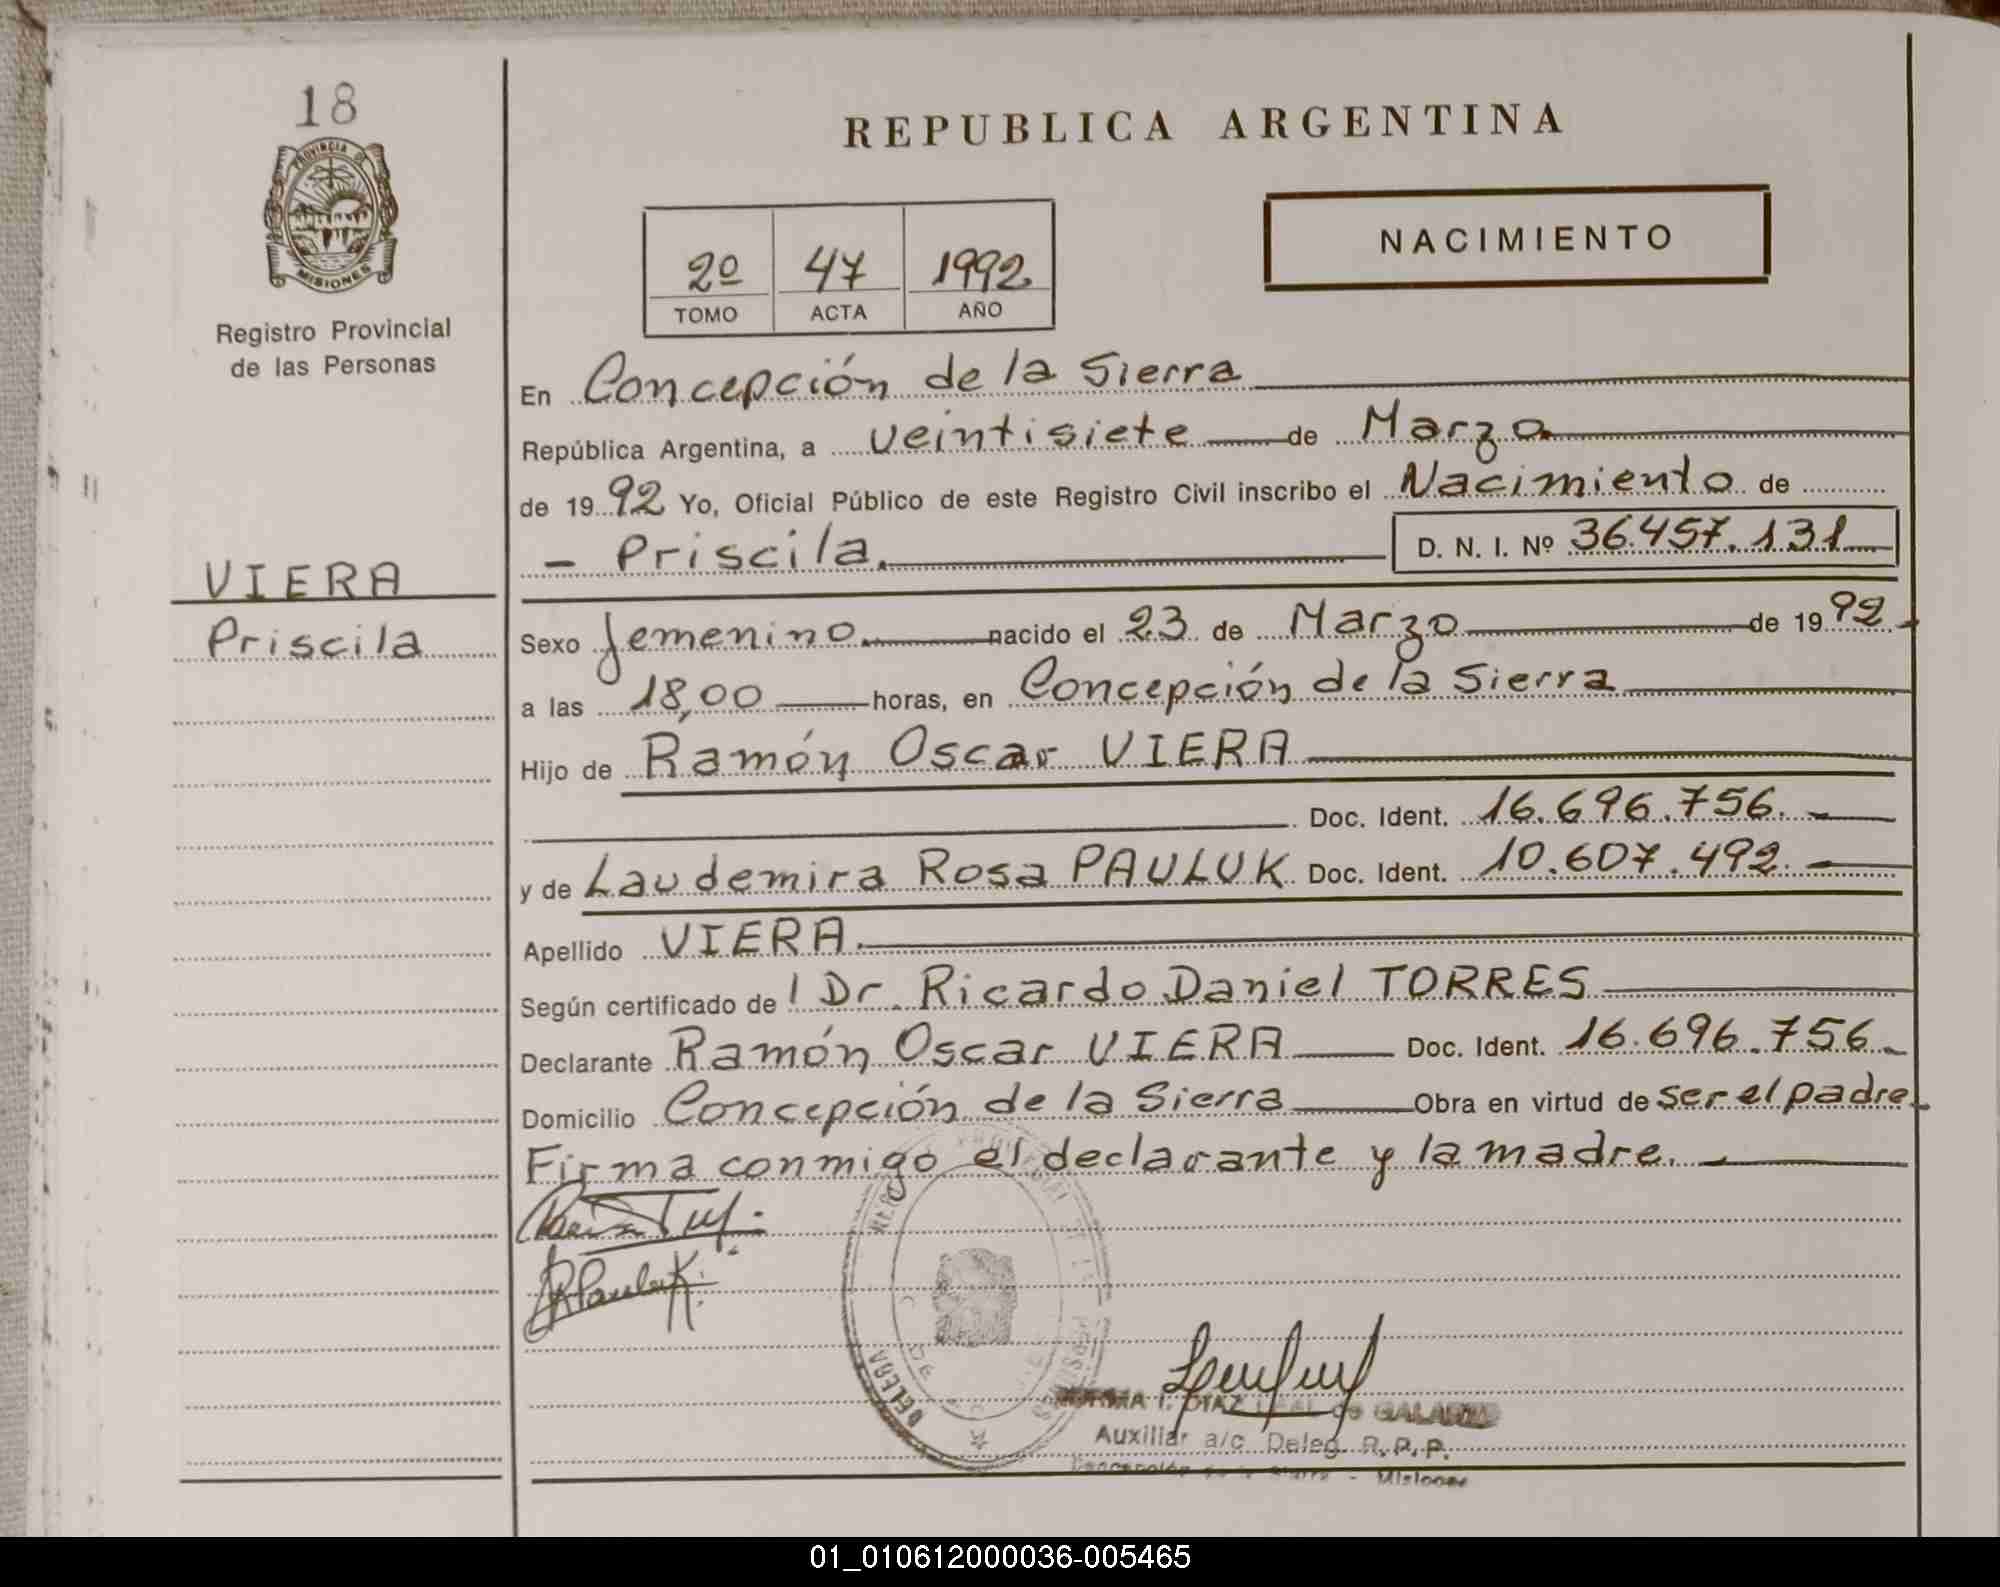 18
PROVINCIA DE
MISIONES
Registro Provincial
de las Personas
VIERA
Priscila
REPUBLICA ARGENTINA
2º 47 1992
TOMO ACTA AÑO
NACIMIENTO
En Concepción de la Sierra
República Argentina, a veintisiete de Marzo
de 1992 Yo, Oficial Público de este Registro Civil inscribo el Nacimiento de
- Priscila. D. N. I. Nº 36.457.131
Sexo femenino nacido el 23 de Marzo de 1992
a las 18,00 horas, en Concepción de la Sierra
Hijo de Ramón Oscar VIERA
Doc. Ident. 16.696.756.
y de Laudemira Rosa PAULUK Doc. Ident. 10.607.492.
Apellido VIERA.
Según certificado de l Dr. Ricardo Daniel TORRES
Declarante Ramón Oscar VIERA Doc. Ident. 16.696.756
Domicilio Concepción de la Sierra Obra en virtud de ser el padre
Firma conmigo el declarante y la madre.
RPauluk
I. DIAZ LEAL de
Auxiliar a/c Deleg. R.P.P.
Concepción de la Sierra - Misiones
01_010612000036-005465